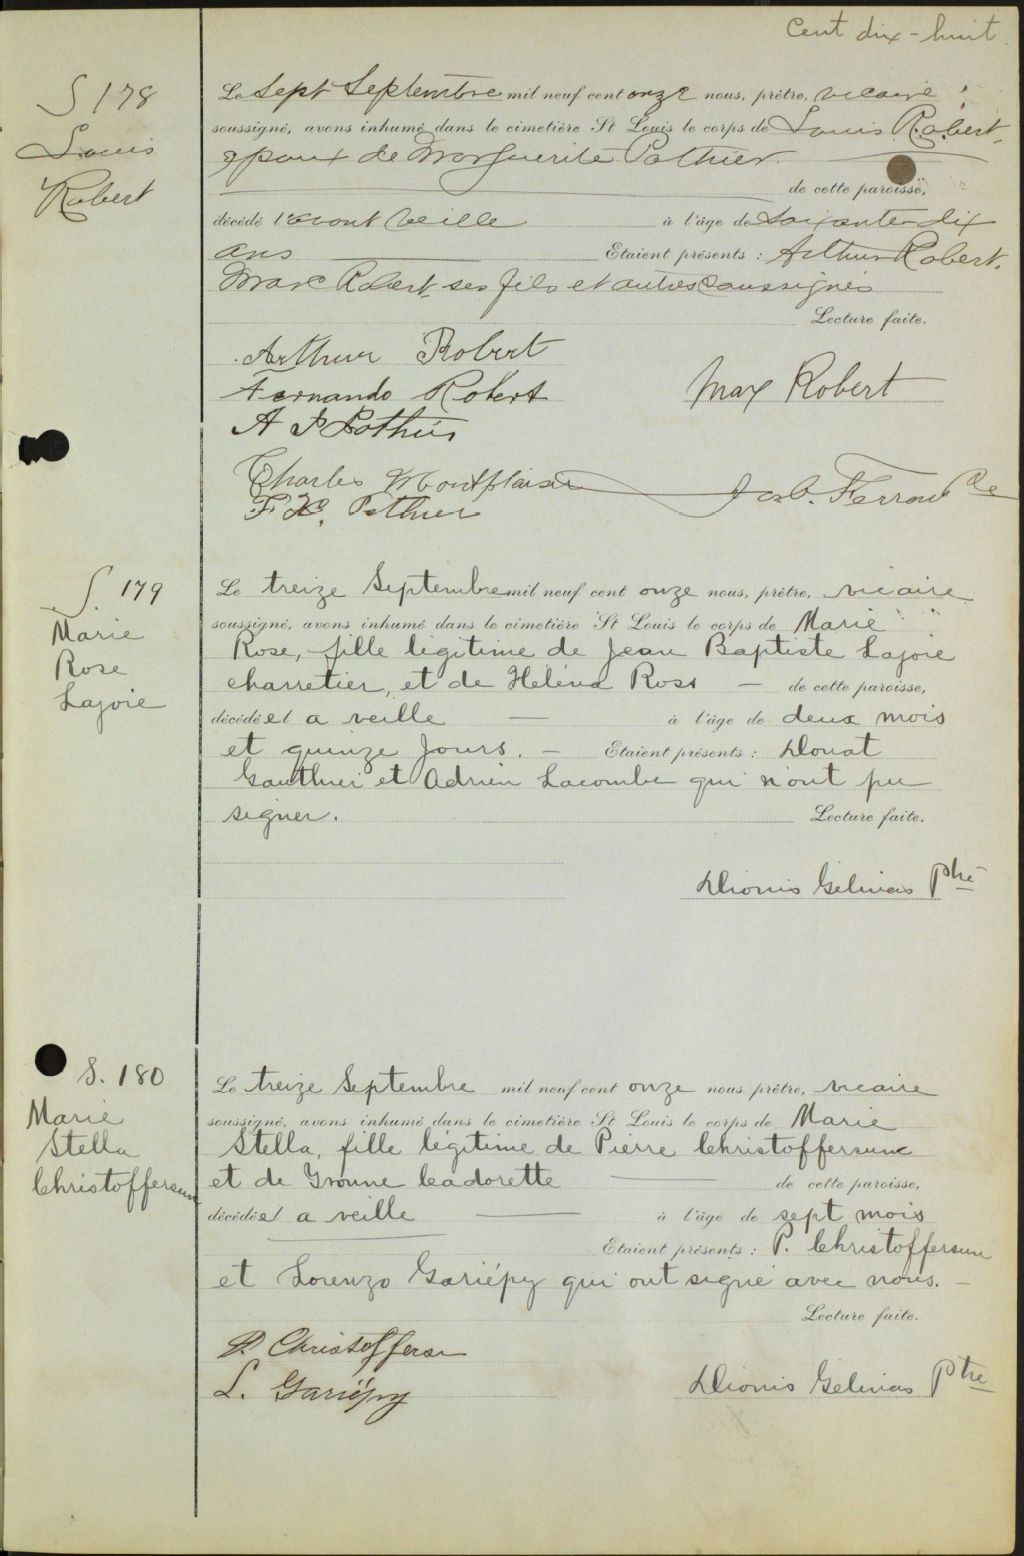 Cent dix-huit.
S 178
Louis
Robert
Le Sept Septembre mil neuf cent onze nous, prêtre, vicaire
soussigné, avons inhumé dans le cimetière St Louis le corps de Louis Robert,
époux de Marguerite Pothier.
de cette paroisse,
décédé l'avant veille à l'âge de Soixante-dix
ans Etaient présents : Arthur Robert,
Max Robert, ses fils et autres soussignés
Lecture faite.
Arthur Robert
Fernando Robert Max Robert
A P Pothier
Charles Montplaisir Ferron Ptre
F. X. Pothier
S. 179
Marie
Rose
Lajoie
Le treize Septembre mil neuf cent onze nous, prêtre, vicaire
soussigné, avons inhumé dans le cimetière St Louis le corps de Marie
Rose, fille légitime de Jean Baptiste Lajoie
charretier, et de Héléna Ross — de cette paroisse,
décédéel a veille — à l'âge de deux mois
et quinze jours. — Etaient présents : Donat
Gauthier et Adrien Lacombe qui n'ont pu
signer. Lecture faite.
Dionis Gelinas Ptre
S. 180
Marie
Stella
Christoffersun
Le treize Septembre mil neuf cent onze nous prêtre, vicaire
soussigné, avons inhumé dans le cimetière St Louis le corps de Marie
Stella, fille légitime de Pierre Christoffersune
et de Yvonne Cadorette — de cette paroisse,
décédéel a veille — à l'âge de sept mois
Etaient présents : P. Christoffersun
et Lorenzo Gariépy qui ont signé avec nous. —
Lecture faite.
P. Christoffersen
L. Gariépy Dionis Gelinas Ptre